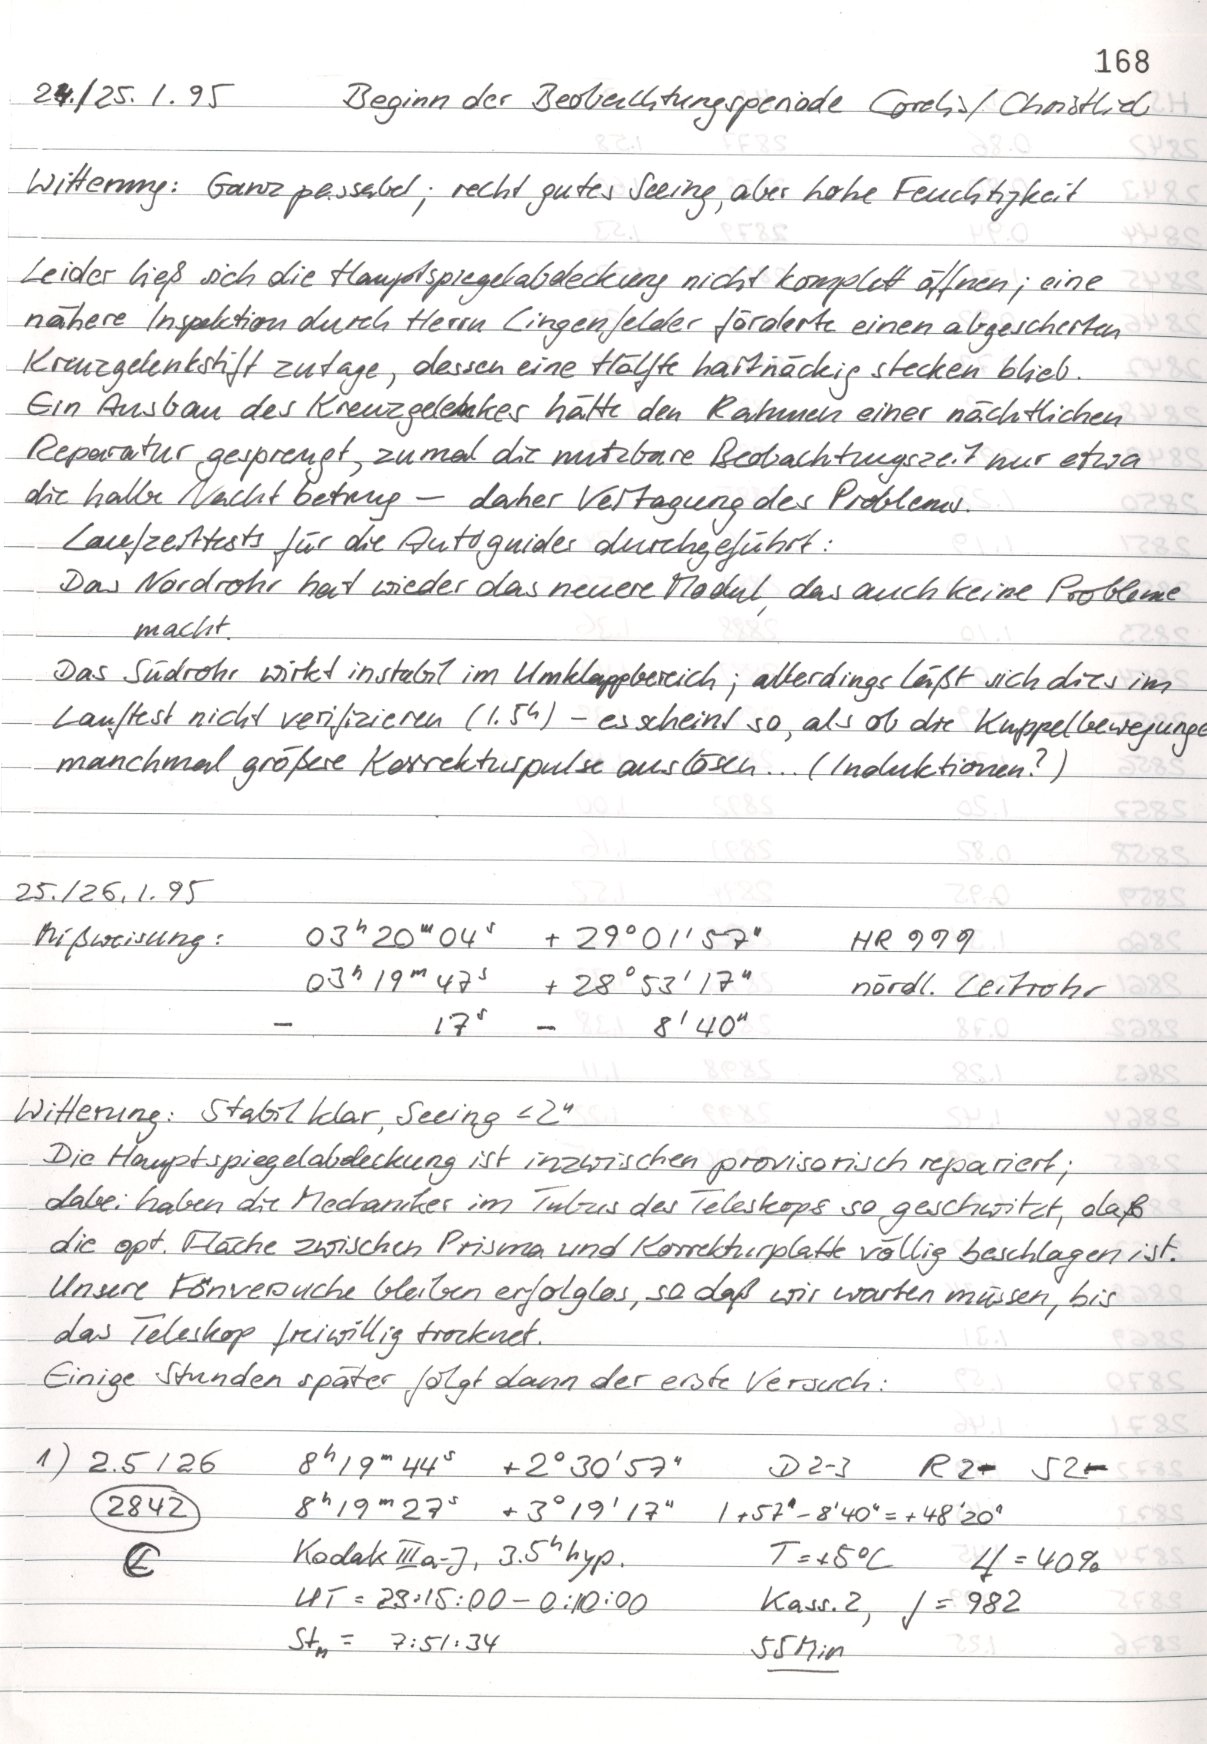 168
24./25.1.95 Beginn der Beobachtungsperiode Cordis/Christlieb
Witterung: Ganz passabel; recht gutes Seeing, aber hohe Feuchtigkeit
Leider ließ sich die Hauptspiegelabdeckung nicht komplett öffnen; eine
nähere Inspektion durch Herrn Lingenfelder förderte einen abgescherten
Kreuzgelenkstift zutage, dessen eine Hälfte hartnäckig stecken blieb.
Ein Ausbau des Kreuzgelenkes hätte den Rahmen einer nächtlichen
Reparatur gesprengt, zumal die nutzbare Beobachtungszeit nur etwa
die halbe Nacht betrug – daher Vertagung des Problems.
Laufzeittests für die Autoguider durchgeführt:
Das Nordrohr hat wieder das neuere Modul, das auch keine Probleme
macht.
Das Südrohr wirkt instabil im Umklappbereich; allerdings läßt sich dies im
Lauftest nicht verifizieren (1.5h) – es scheint so, als ob die Kuppelbewegunge
manchmal größere Korrekturpulse auslösen... (Induktionen?)
25./26.1.95
Mißweisung: 03h 20m 04s + 29° 01' 57" HR 999
03h 19m 47s + 28° 53' 17" nördl. Leitrohr
– 17s – 8' 40"
Witterung: Stabil klar, Seeing <2"
Die Hauptspiegelabdeckung ist inzwischen provisorisch repariert;
dabei haben die Mechaniker im Tubus des Teleskops so geschwitzt, daß
die opt. Fläche zwischen Prisma und Korrekturplatte völlig beschlagen ist.
Unsere Fönversuche bleiben erfolglos, so daß wir warten müssen, bis
das Teleskop freiwillig trocknet.
Einige Stunden später folgt dann der erste Versuch:
1) 2.5/26 8h 19m 44s +2° 30' 57" D 2-3 R 2- S 2-
2842 8h 19m 27s +3° 19' 17" 1 +57' – 8'40" = +48'20"
Kodak IIIa-J, 3.5h hyp. T = +5°C = 40%
UT = 23:15:00 – 0:10:00 Kass. 2, f = 982
Stm = 7:51:34 55 Min